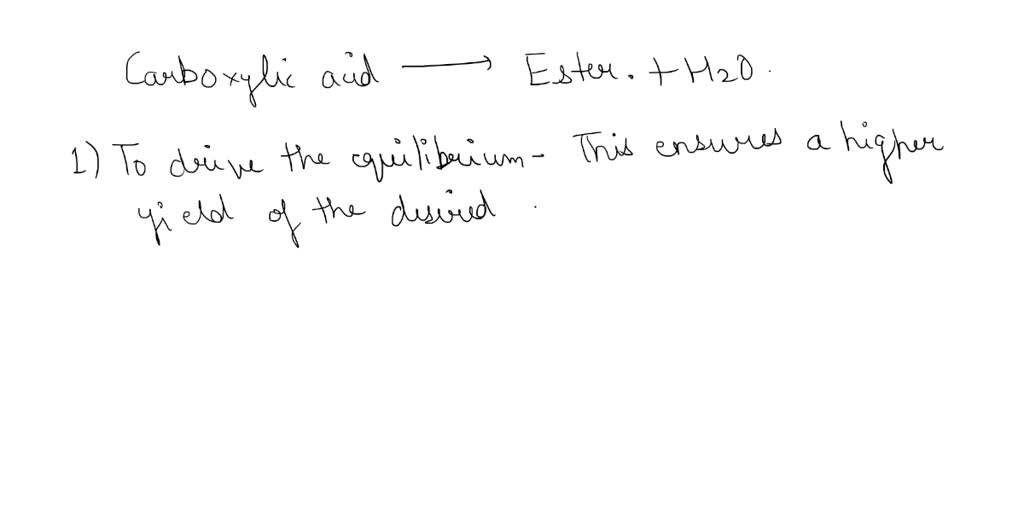 Carboxylic acid → Ester. + H2O.
1) To drive the equilibrium - This ensures a higher
yield of the desired .